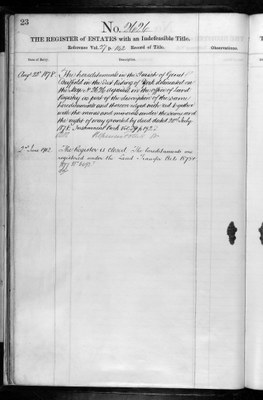 23
No. 2626
THE REGISTER OF ESTATES with an Indefeasible Title.
Reference Vol. 27 & 162 Record of Title.
Date of Entry.
Description.
Observations.
Aug 23rd 1878
The hereditaments in the Parish of Great
Driffield in the East Riding of York delineated on
the Map No 2626 deposited in the Office of Land
Registry as part of the description of the same
hereditaments and thereon edged with red together
with the mines and minerals under the same and
the right of way granted by deed dated July
1878 Instrument Book Vol
2nd June 1902.
The Register is closed. The hereditaments are
registered under the Land Transfer Acts 1875 &